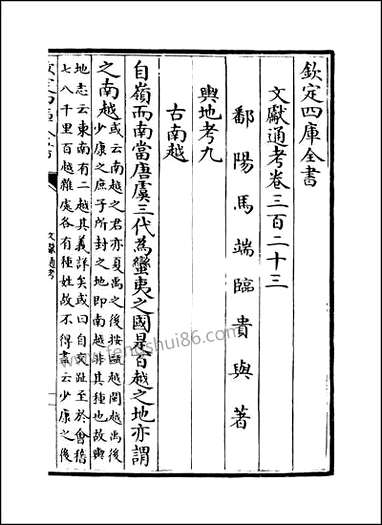 欽定四庫全書
文獻通考卷三百二十三
鄱陽馬端臨貴與著
輿地考九
古南越
自嶺而南當唐虞三代為蠻夷之國是百越之地亦謂
之南越或云南越之君亦夏禹之後按甌越閩越禹後
少康之庶子所封之地即南越非其種也故輿
地志云東南有二越其義詳矣或曰自交趾至於會稽
七八千里百越雜處各有種姓故不得盡云少康之後
文獻通考
www.fengshui86.com